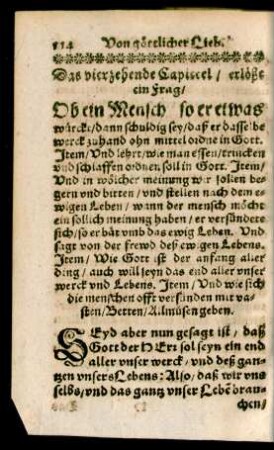 114 Von göttlicher Lieb.
Das vierzehende Capittel / erlößt
ein Frag /
Ob ein Mensch so er etwas
würckt / dann schuldig sey / daß er dasselbe
werck zuhand ohn mittel ordne in Gott.
Item / Vnd lehrt / wie man essen / trincken
vnd schlaffen ordnen soll in Gott. Item /
Vnd in wölcher meinung wir sollen be-
gern vnd bitten / vnd stellen nach dem e-
wigen Leben / wann der mensch möcht
ein sollich meinung haben / er versündete
sich / so er bät vmb das ewig Leben. Vnd
sagt von der frewd deß ewigen Lebens.
Item / Wie Gott ist der anfang aller
ding / auch will seyn das end aller vnser
werck vnd Lebens. Item / Vnd wie sich
die menschen offt versünden mit va-
sten / Betten / Allmůsen geben.
SEyd aber nun gesagt ist / daß
Gott der HErr sol seyn ein end
aller vnser werck / vnd deß gan-
tzen vnsers Lebens: Also / daß wir vns
selbs / vnd das gantz vnser Lebē brau-
chen /